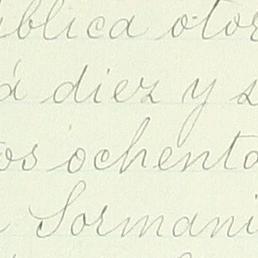 ública otor
á diez y s
os ochenta
Sormani